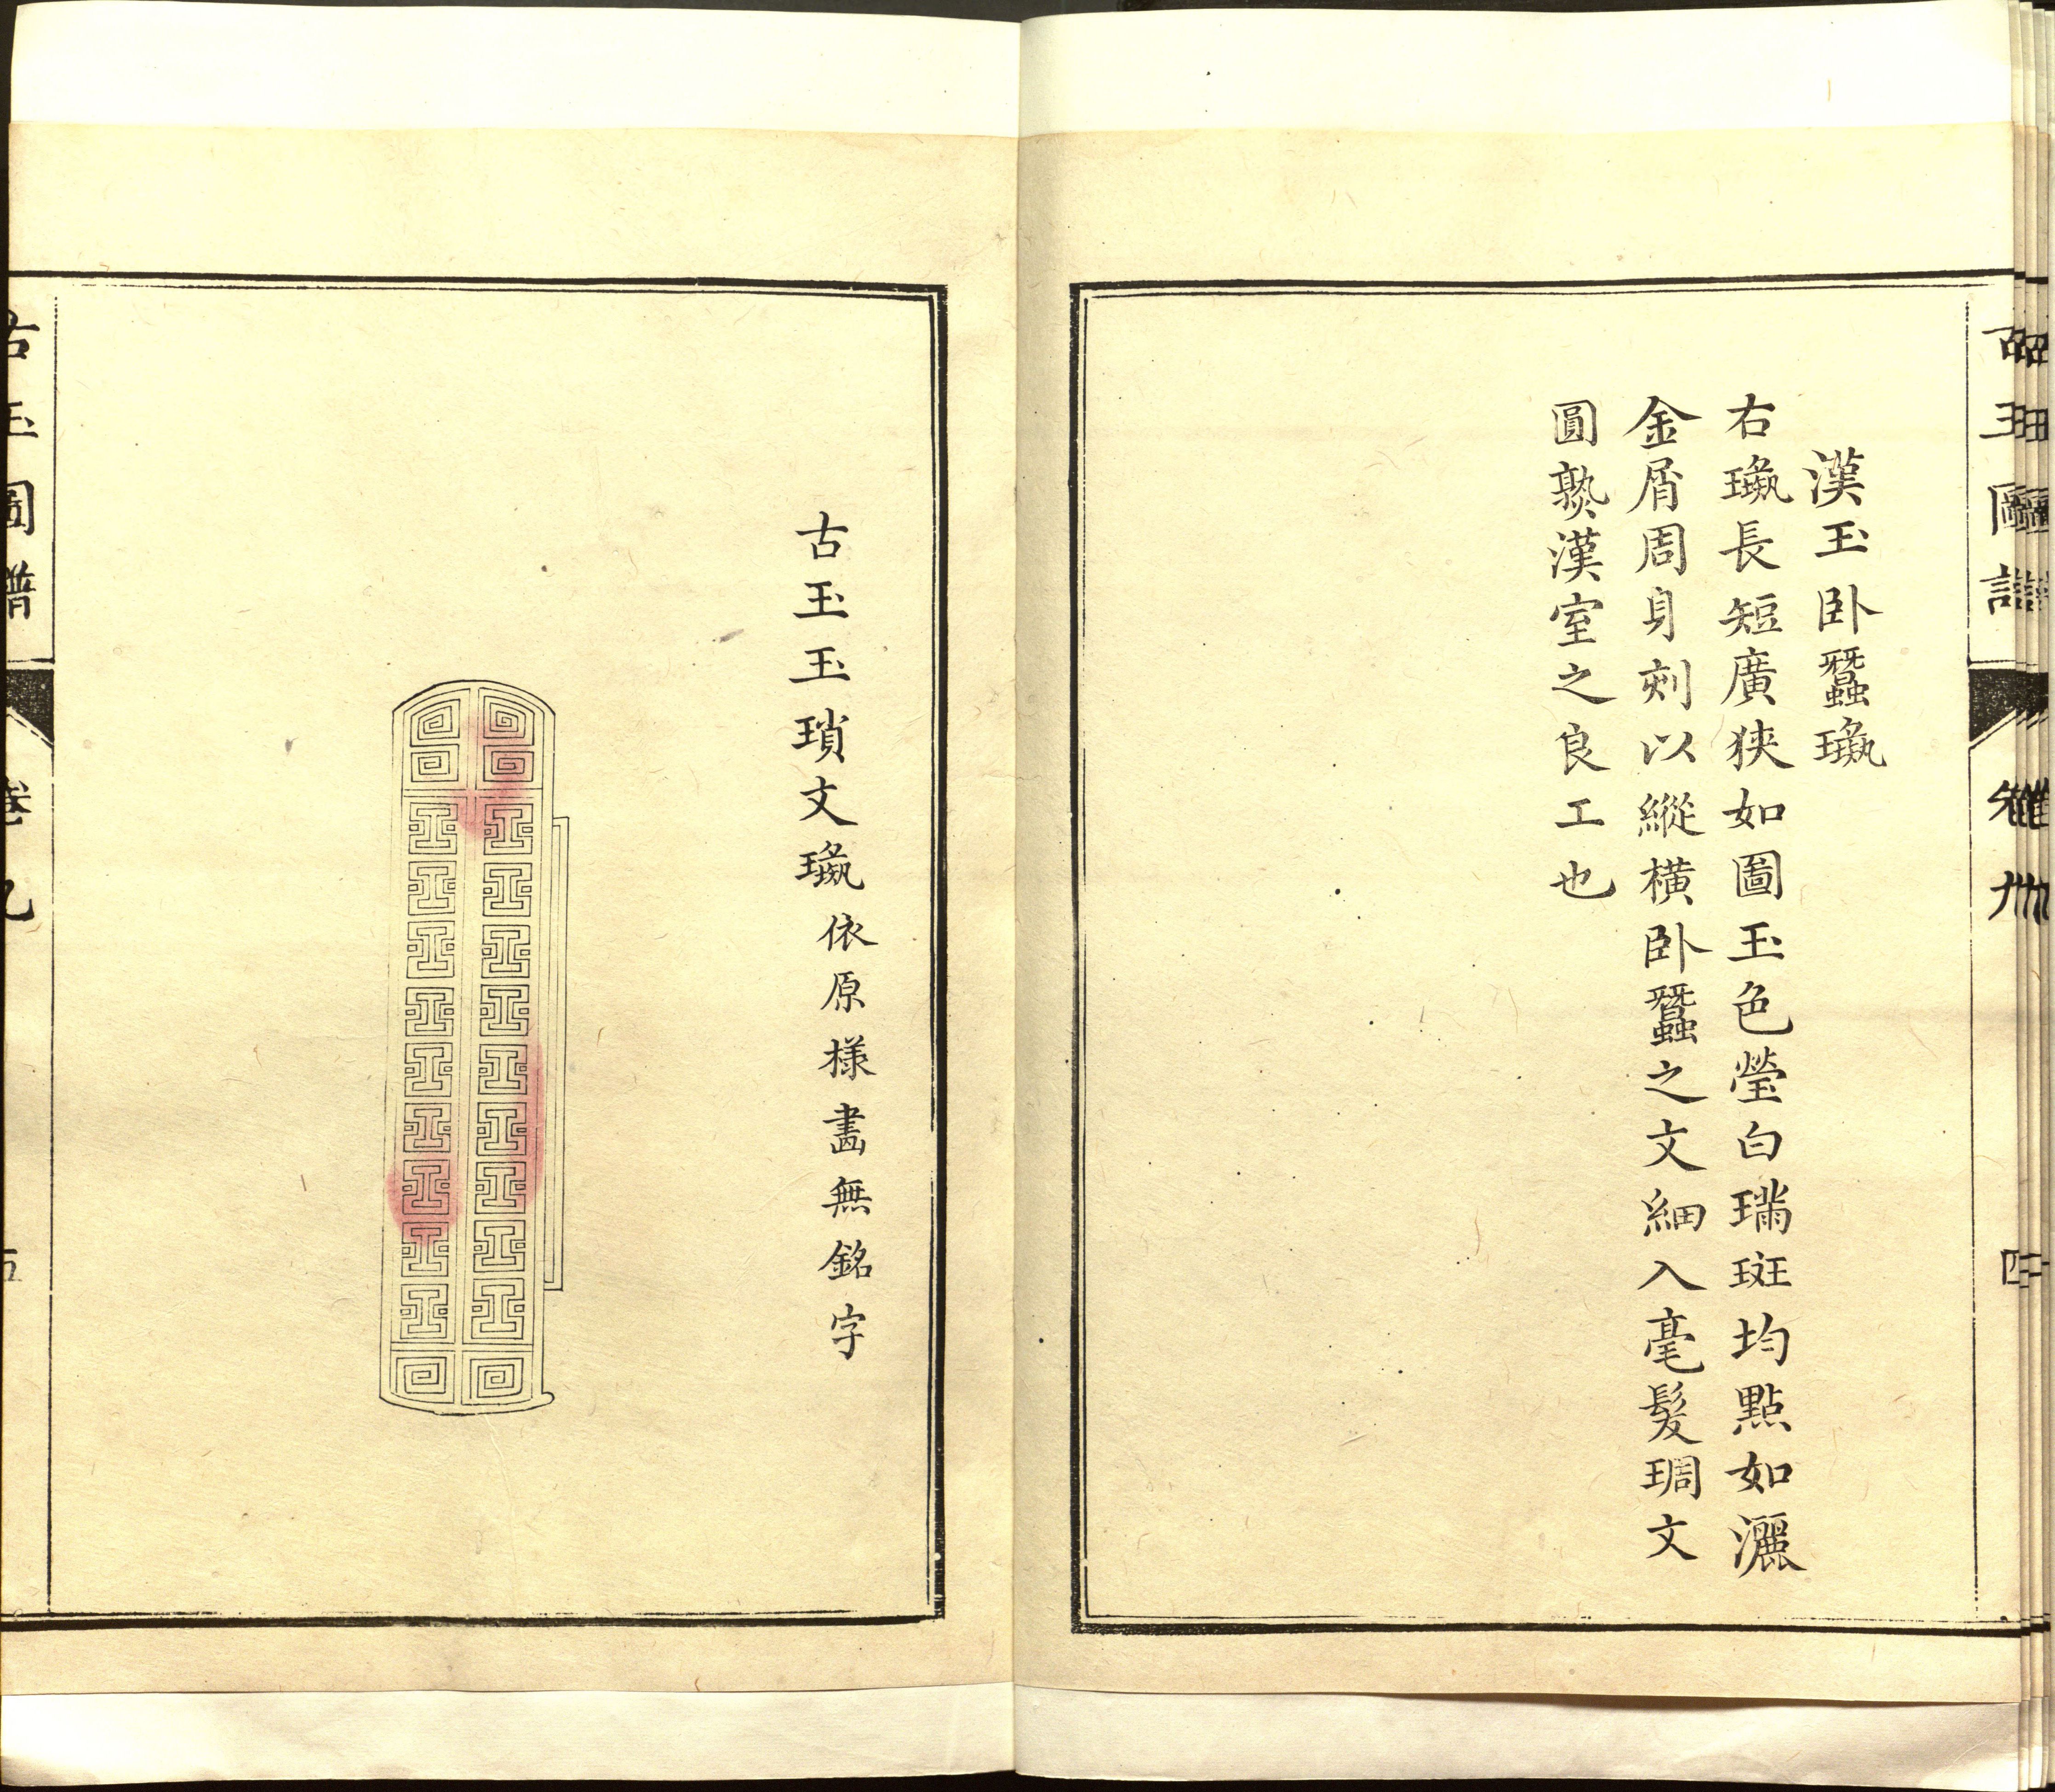 漢玉卧蠶璏
右璏長短廣狹如圖玉色瑩白璊斑均點如灑
金屑周身刻以縱橫卧蠶之文細入毫髮琱文
圓熟漢室之良工也
古玉玉瑣文璏依原様畫無銘字
古玉圖譜
卷九
五